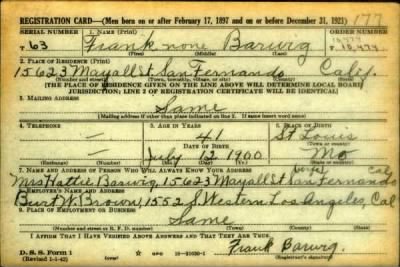 REGISTRATION CARD—(Men born on or after February 17, 1897 and on or before December 31, 1921)
177
SERIAL NUMBER 1. NAME (Print) ORDER NUMBER
T 63 Frank none Barwig 10,474
(First) (Middle) (Last)
2. PLACE OF RESIDENCE (Print)
15623 Mayall St. San Fernando Calif.
(THE PLACE OF RESIDENCE GIVEN ON THE LINE ABOVE WILL DETERMINE LOCAL BOARD
JURISDICTION; LINE 2 OF REGISTRATION CERTIFICATE WILL BE IDENTICAL)
3. MAILING ADDRESS
Same
(Mailing address if other than place indicated on line 2. If same insert word same)
4. TELEPHONE 5. AGE IN YEARS 6. PLACE OF BIRTH
— 41 St Louis
DATE OF BIRTH
— July 12 1900 Mo
(Exchange) (Number) (Mo.) (Day) (Yr.) (State or country)
7. NAME AND ADDRESS OF PERSON WHO WILL ALWAYS KNOW YOUR ADDRESS
Cal
Mrs Hattie Barwig, 15623 Mayall St San Fernando
8. EMPLOYER'S NAME AND ADDRESS
Burt W. Brown, 1552 S Western Los Angeles, Cal
9. PLACE OF EMPLOYMENT OR BUSINESS
Same
(Number and street or R. F. D. number) (Town) (County) (State)
I AFFIRM THAT I HAVE VERIFIED ABOVE ANSWERS AND THAT THEY ARE TRUE.
D. S. S. Form 1
(Revised 1-1-42) GPO 16—21630-1 Frank Barwig